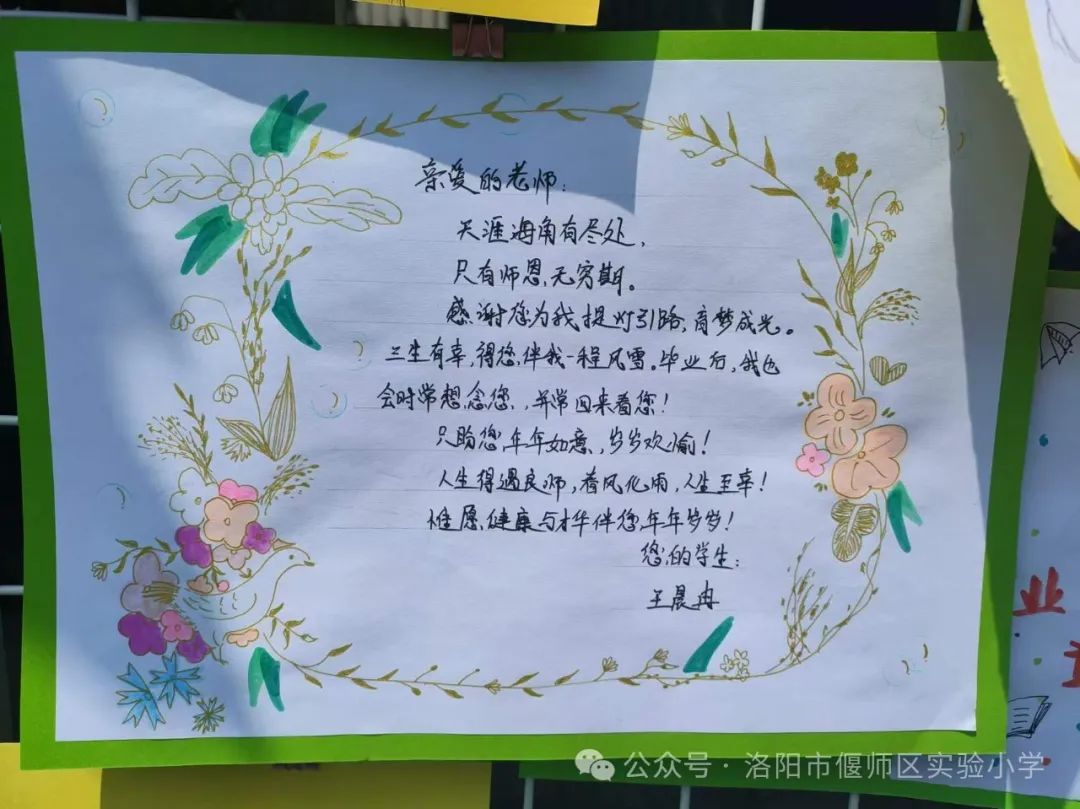 亲爱的老师：
天涯海角有尽处，
只有师恩无穷期。
感谢您为我提灯引路，育梦成光。
三生有幸，得您伴我一程风雪。毕业后，我也
会时常想念您，并常回来看您！
只盼您，年年如意，岁岁欢愉！
人生得遇良师，春风化雨，人生至幸！
惟愿健康与才华伴您，年年岁岁！
您的学生：
王晨冉
业
公众号·洛阳市偃师区实验小学